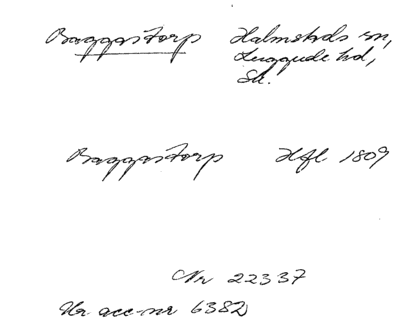 Baggastorp Halmstads sn,
Luggude hd,
Sk.
Baggastorp Hfl 1809
Nr 22337
Ur acc-nr 6382